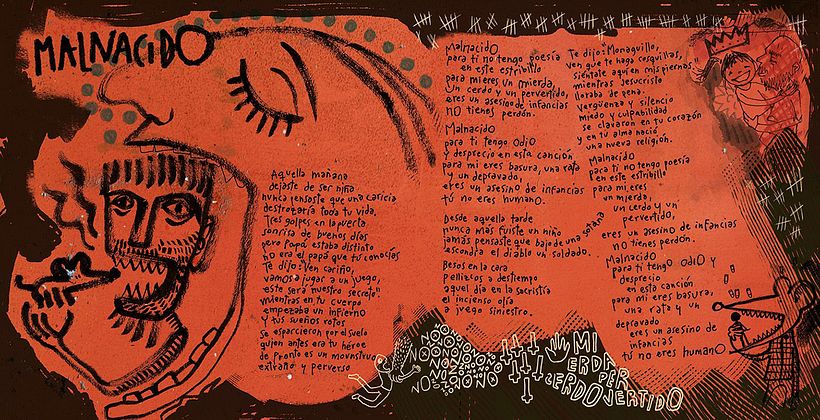 MALNACIDO
Aquella mañana
dejaste de ser niña
nunca pensaste que una caricia
destrozaría toda tu vida.
Tres golpes en la puerta
sonrisa de buenos días
pero Papá estaba distinto
no era el papá que tú conocías
Te dijo: Ven cariño,
vamos a jugar a un juego,
este será nuestro secreto!
mientras en tu cuerpo
empezaba un infierno
y tus sueños rotos
se esparcieron por el suelo
quien antes era tu héroe
de pronto es un monstruo
extraño y perverso
Malnacido
para ti no tengo poesía
en este estribillo
para mi eres un mierda,
un cerdo y un pervertido,
eres un asesino de infancias
no tienes perdón.
Malnacido
para ti tengo odio
y desprecio en esta canción
para mi eres basura, una rata
y un depravado,
eres un asesino de infancias
tú no eres humano.
Desde aquella tarde
nunca más fuiste un niño
jamás pensaste que bajo de una sotana
escondía el diablo un soldado.
Besos en la cara
pellizcos a destiempo
aquel día en la sacristía
el incienso olía
a juego siniestro.
Te dijo: Monaguillo,
ven que te haga cosquillas,
siéntate aquí en mis piernas
mientras Jesucristo
lloraba de pena.
vergüenza y silencio
miedo y culpabilidad
se clavaron en tu corazón
y en tu alma nació
una nueva religión.
Malnacido
para ti no tengo poesía
en este estribillo
para mi eres
un mierda,
un cerdo y un
pervertido,
eres un asesino de infancias
no tienes perdón.
Malnacido
para ti tengo odio y
desprecio
en esta canción
para mi eres basura,
una rata y un
depravado
eres un asesino de
infancias
tú no eres humano
MIERDA
CERDO PERVERTIDO